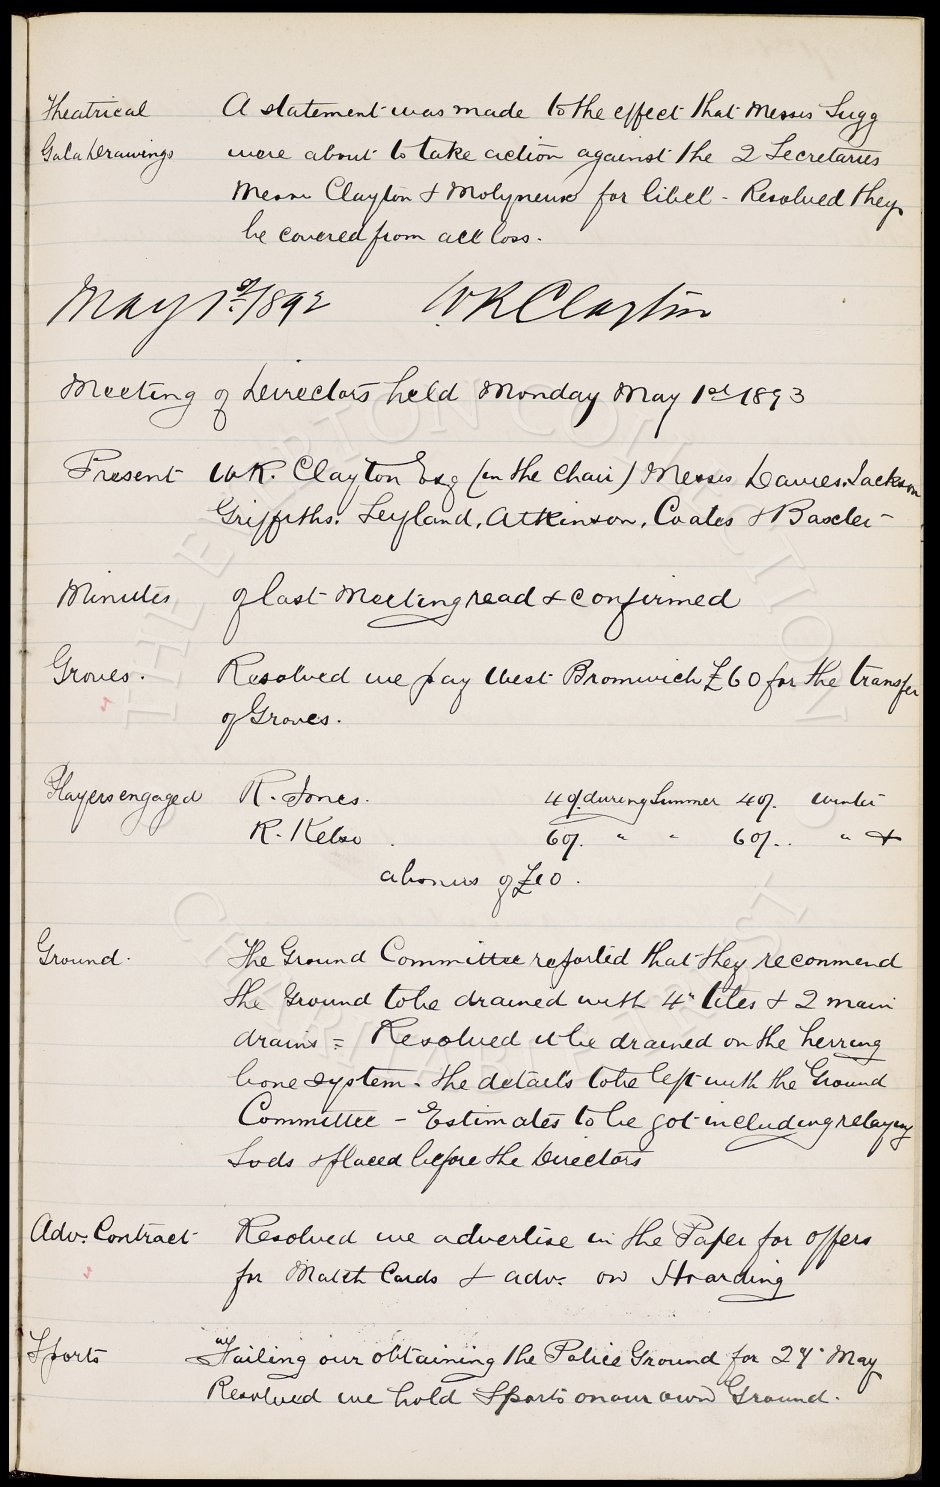 Theatrical Gala Drawings A statement was made to the effect that Messrs Sugg
were about to take action against the 2 Secretaries
Messrs Clayton & Molyneux for libel - Resolved they
be covered from all loss.
May 1st/1892 WR Clayton
Meeting of Directors held Monday May 1st 1893
Present W.R. Clayton Esq (in the Chair) Messrs Davies. Jackson
Griffiths. Leyland, Atkinson, Coates & Baxter
Minutes of last Meeting read & confirmed
Groves. Resolved we pay West Bromwich £60 for the transfer
of Groves.
Players engaged R. Jones. 40/. during Summer 40/. Winter
R. Kelso. 60/. " " 60/. . " &
a bonus of £10.
Ground. The Ground Committee reported that they reconmend
the Ground to be drained with 4" tiles & 2 main
drains = Resolved it be drained on the herring
bone system. The details to be left with the Ground
Committee - Estimates to be got including relaying
Sods & placed before the Directors
Adv. Contract Resolved we advertise in the Paper for offers
for Match Cards & adv. on Hoarding
Sports Failing our obtaining the Police Ground for 24" May
Resolved we hold Sports on our own Ground.
THE EVERTON COLLECTION
CHARITABLE TRUST